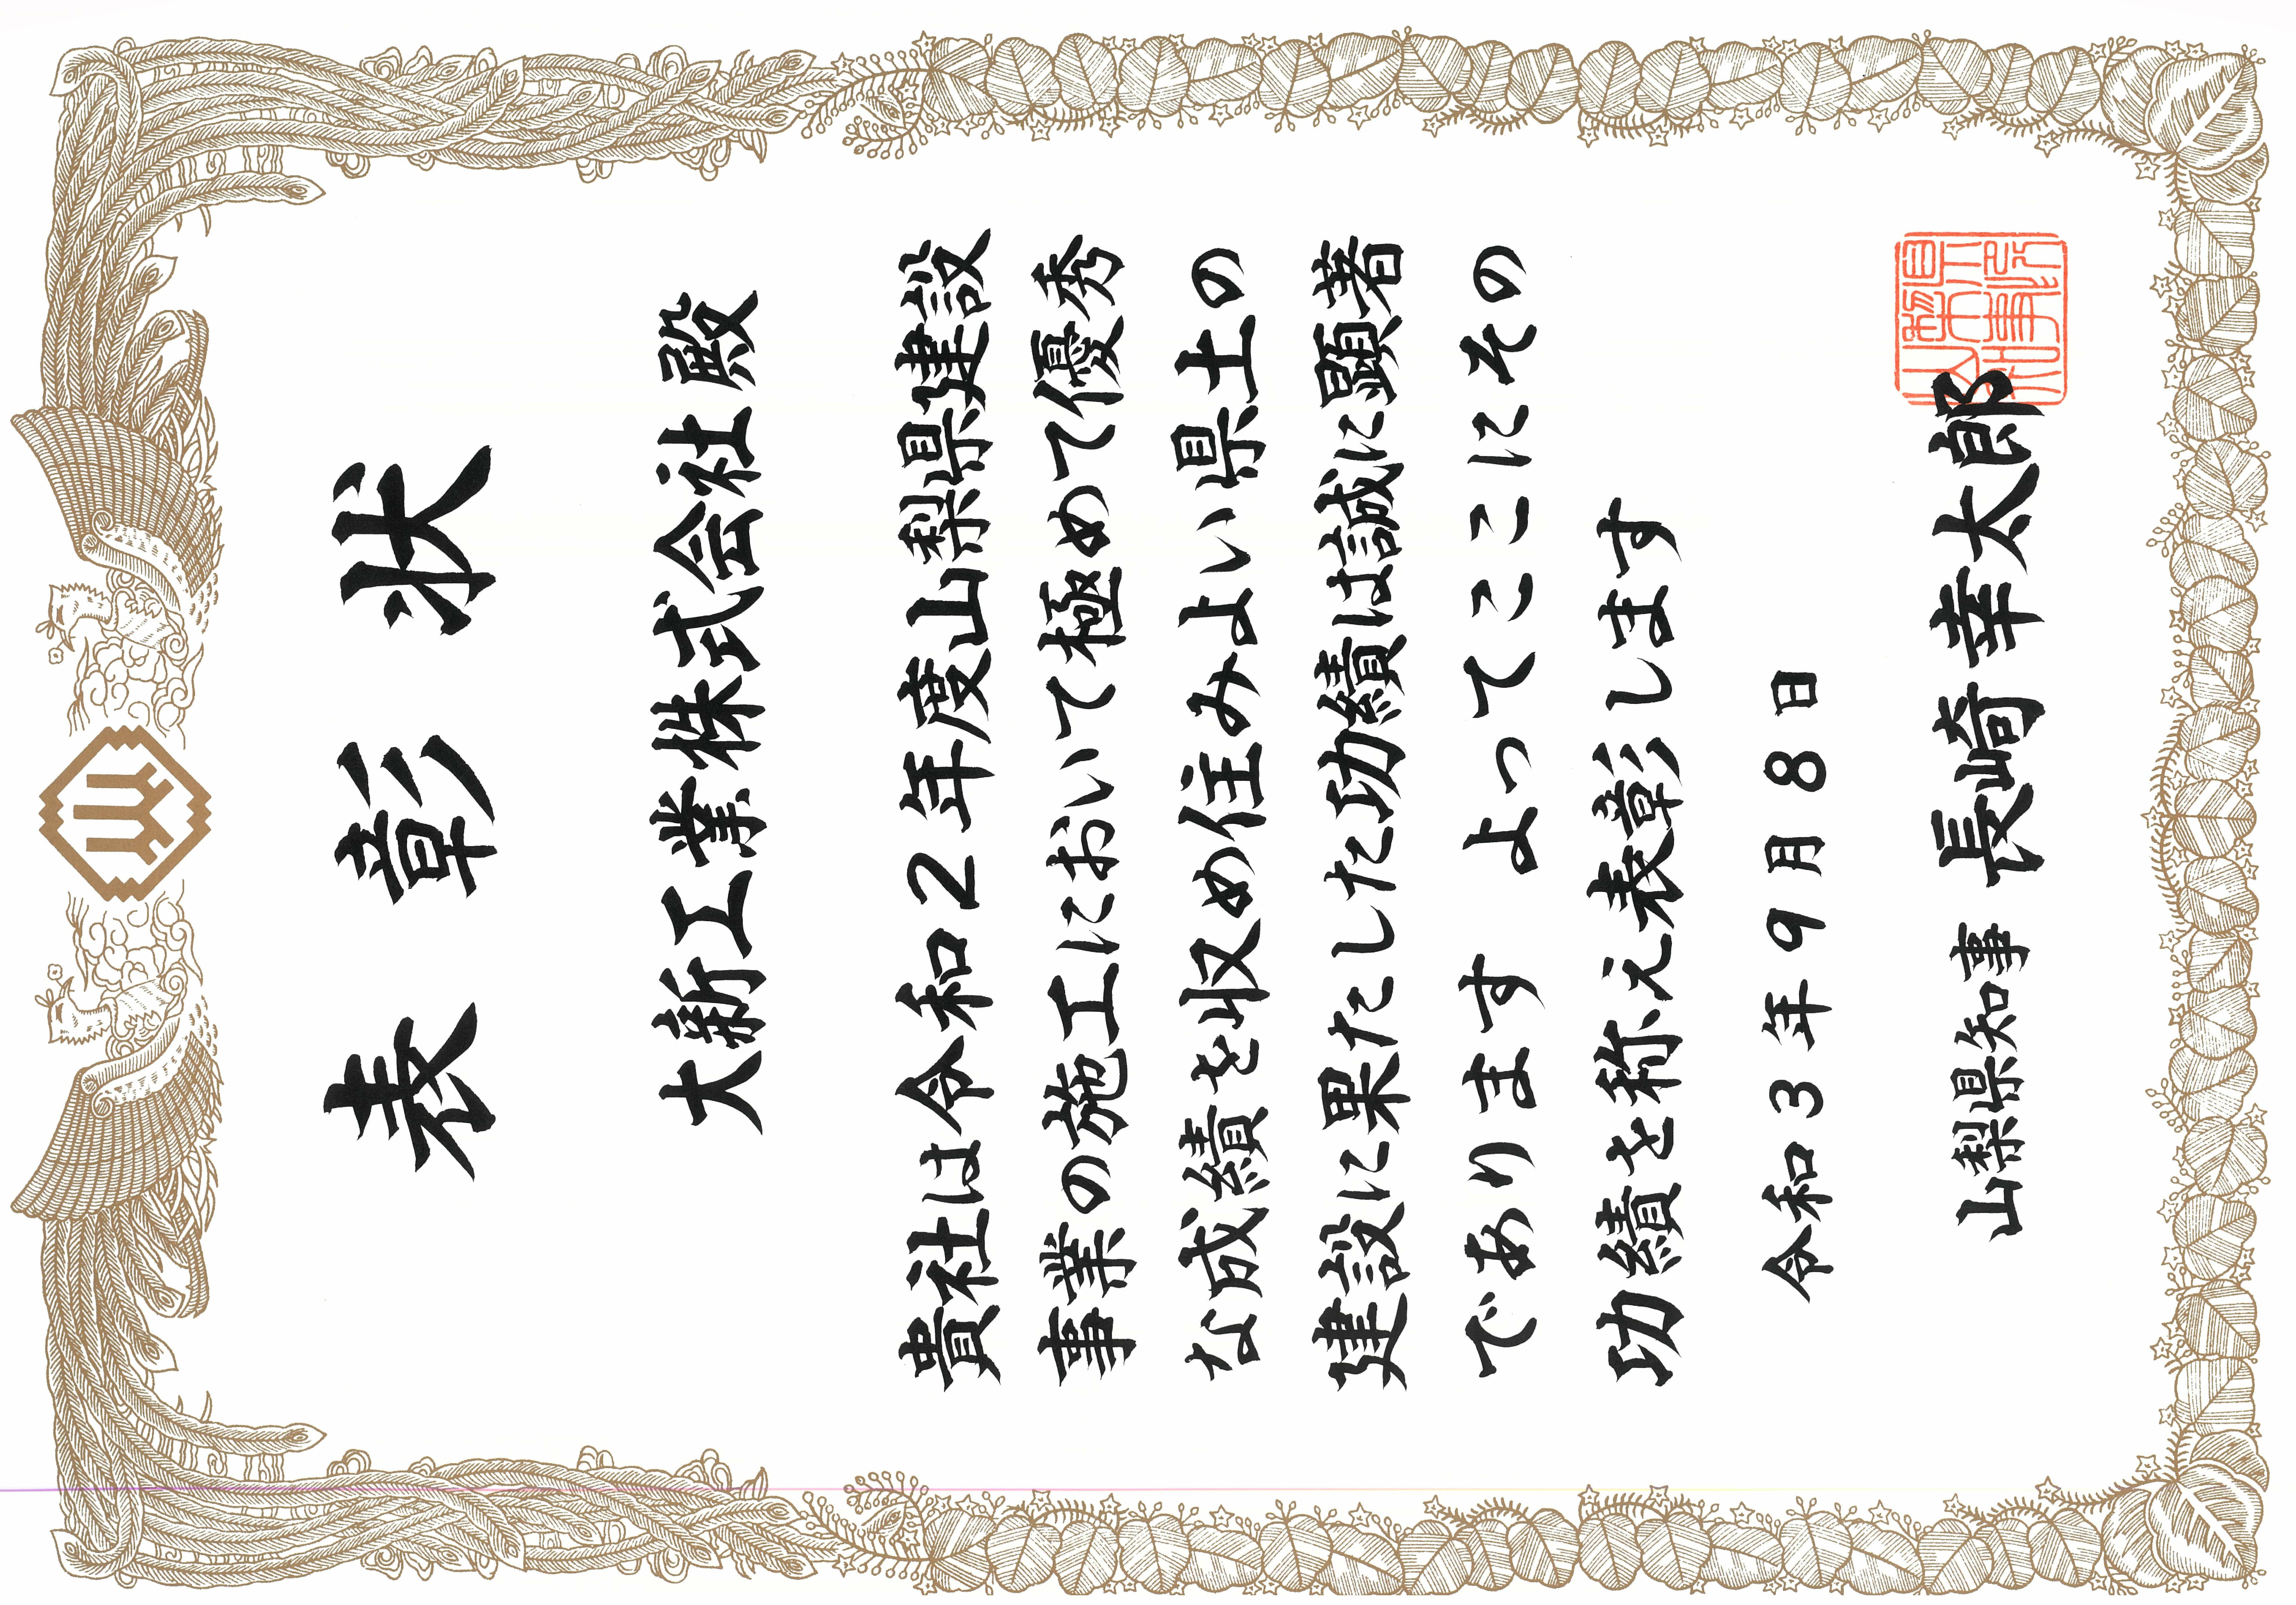 表彰状
大新工業株式会社 殿
貴社は令和2年度山梨県建設
事業の施工において極めて優秀
な成績を収め住みよい県土の
建設に果たした功績は誠に顕著
であります よってここにその
功績を称え表彰します
令和3年9月8日
山梨県知事 長崎幸太郎